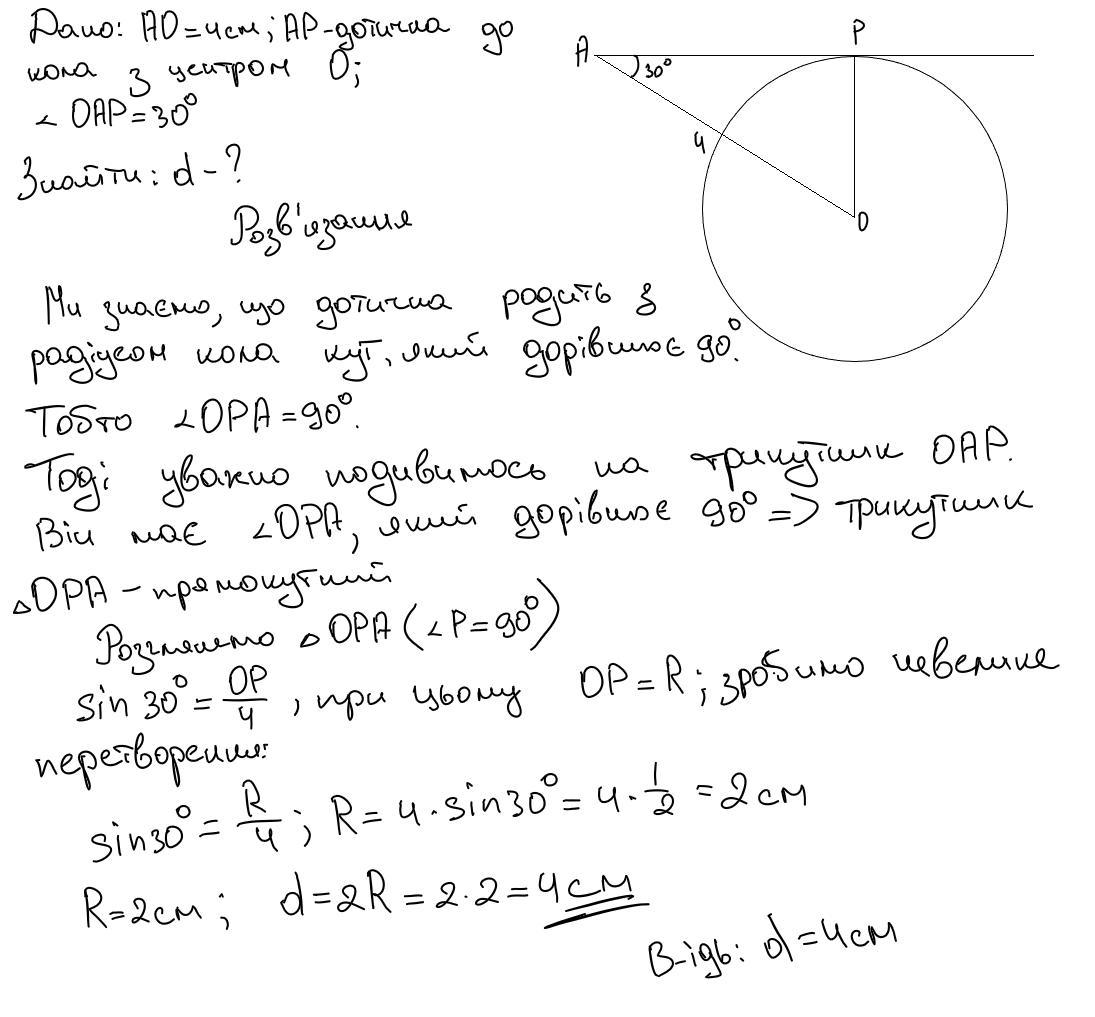 Дано: AO=4см; AP-дотична до
кола з центром O;
∠ OAP=30°
Знайти: d-?
Розв'язання
A
P
30°
4
O
Ми знаємо, що дотична робить з
радіусом кола кут, який дорівнює 90°.
Тобто ∠OPA=90°.
Тоді уважно подивимось на трикутник OAP.
Він має ∠OPA, який дорівнює 90° => трикутник
△OPA - прямокутний
Розглянемо △ OPA (∠P=90°)
sin 30° = OP/4, при цьому OP=R; зробимо невелике
перетворення:
sin30° = R/4; R= 4·sin30° = 4·1/2 = 2см
R=2см; d=2R=2·2=4см
В-ідь: d=4см